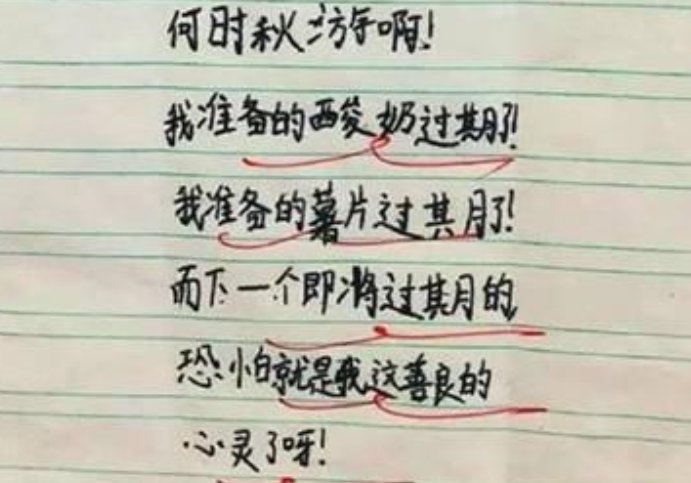 何时秋游啊!
我准备的酸奶过期了!
我准备的薯片过期了!
而下一个即将过期的,
恐怕就是我这善良的
心灵了呀!